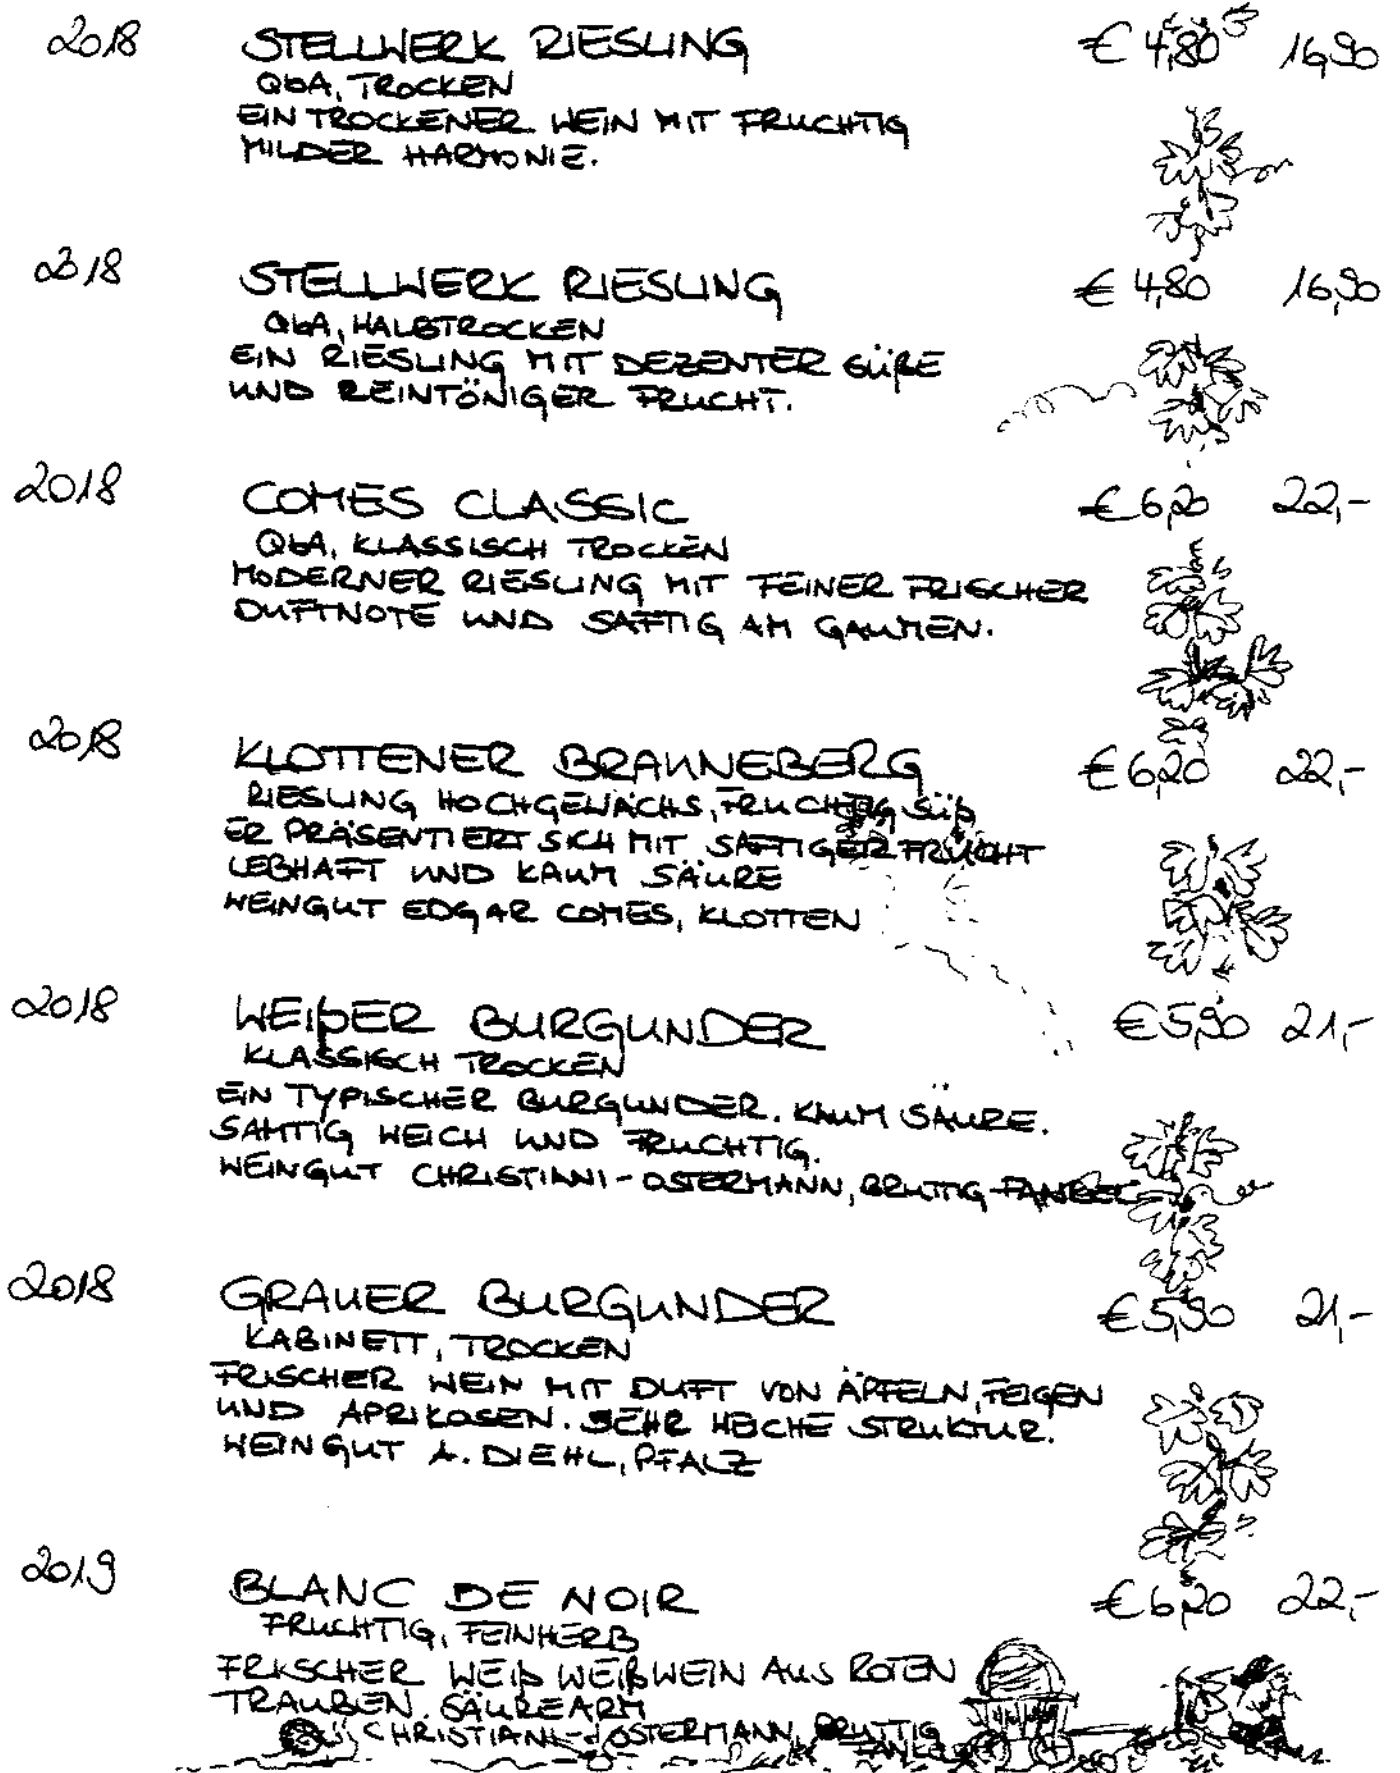 2018 STELLWERK RIESLING € 4,80 16,90
QbA, TROCKEN
EIN TROCKENER WEIN MIT FRUCHTIG
MILDER HARMONIE.
2018 STELLWERK RIESLING € 4,80 16,90
QbA, HALBTROCKEN
EIN RIESLING MIT DEZENTER SÜßE
UND REINTÖNIGER FRUCHT.
2018 COMES CLASSIC € 6,20 22,-
QbA, KLASSISCH TROCKEN
MODERNER RIESLING MIT FEINER FRISCHER
DUFTNOTE UND SAFTIG AM GAUMEN.
2018 KLOTTENER BRAUNEBERG € 6,20 22,-
RIESLING HOCHGEWÄCHS, FRUCHTIG SÜß
ER PRÄSENTIERT SICH MIT SAFTIGER FRUCHT
LEBHAFT UND KAUM SÄURE
WEINGUT EDGAR COMES, KLOTTEN
2018 WEIßER BURGUNDER € 5,90 21,-
KLASSISCH TROCKEN
EIN TYPISCHER BURGUNDER. KAUM SÄURE.
SAMTIG WEICH UND FRUCHTIG.
WEINGUT CHRISTIANI-OSTERMANN, BRUTTIG-FANKEL
2018 GRAUER BURGUNDER € 5,90 21,-
KABINETT, TROCKEN
FRISCHER WEIN MIT DUFT VON ÄPFELN, FEIGEN
UND APRIKOSEN. SEHR WEICHE STRUKTUR.
WEINGUT A. DIEHL, PFALZ
2019 BLANC DE NOIR € 6,20 22,-
FRUCHTIG, FEINHERB
FRISCHER WEIß WEIßWEIN AUS ROTEN
TRAUBEN. SÄUREARM
CHRISTIANI-OSTERMANN, BRUTTIG
FANKEL